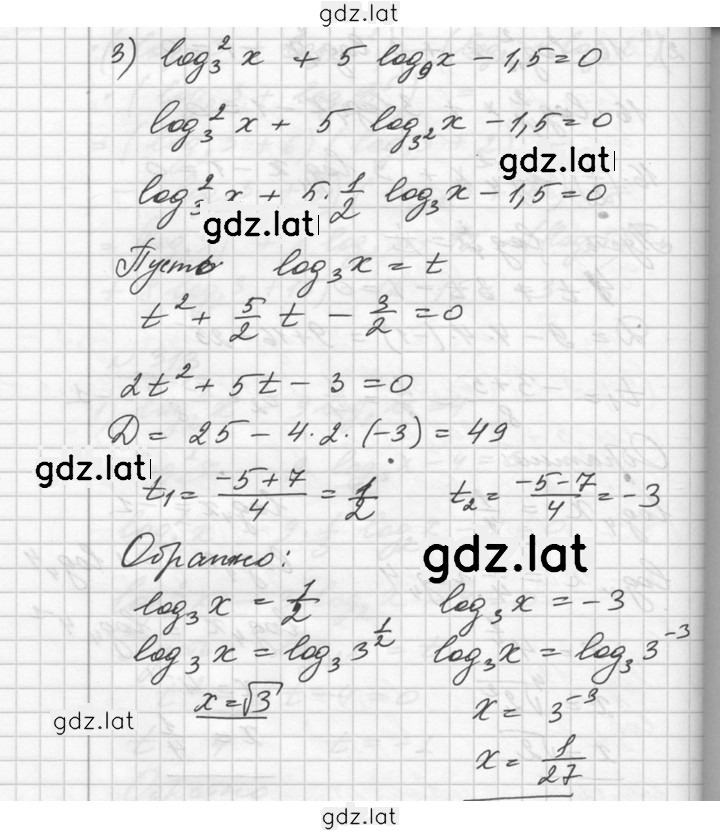 gdz.lat
3) log₃² x + 5 log₉x − 1,5 = 0
log₃² x + 5 log₃²x − 1,5 = 0
gdz.lat
log₃² x + 5 · 1/2 log₃x − 1,5 = 0
gdz.lat
Пусть log₃x = t
t² + 5/2 t − 3/2 = 0
2t² + 5t − 3 = 0
D = 25 − 4·2·(−3) = 49
gdz.lat
t₁ = (−5+7)/4 = 1/2 t₂ = (−5−7)/4 = −3
Обратно: gdz.lat
log₃x = 1/2 log₃x = −3
log₃x = log₃3^(1/2) log₃x = log₃3⁻³
x = √3 x = 3⁻³
gdz.lat
x = 1/27
gdz.lat